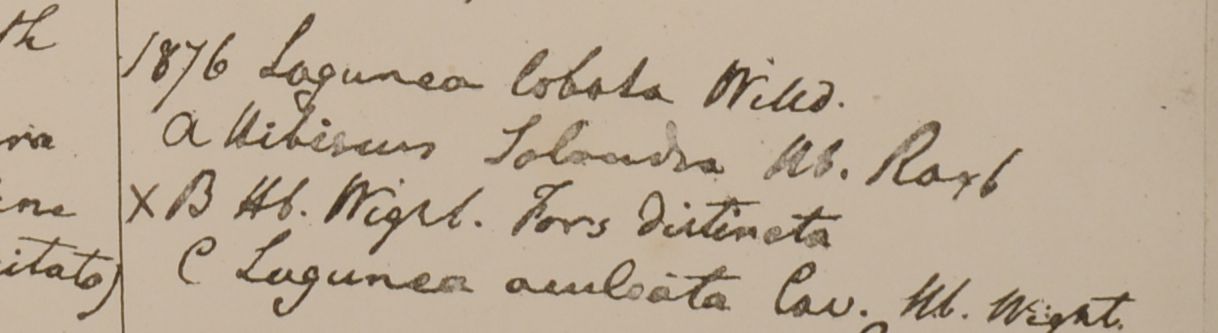 th
1876 Lagunea lobata Willd.
ra
A Hibiscus Solandra Hb. Roxb
ne
X B Hb. Wight. Fors distincta
itato)
C Lagunea aculeata Cav. Hb. Wight.